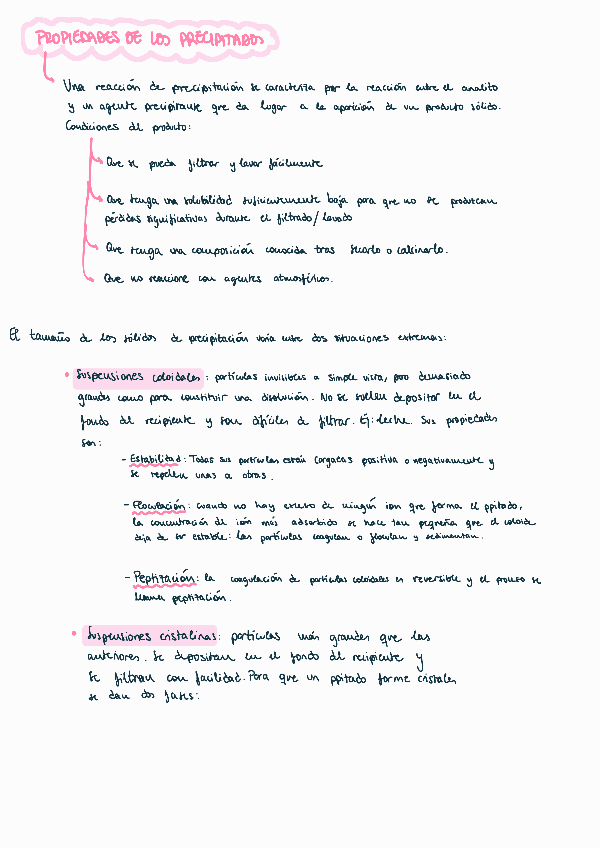 PROPIEDADES DE LOS PRECIPITADOS
Una reacción de precipitación se caracteriza por la reacción entre el analito
y un agente precipitante que da lugar a la aparición de un producto sólido.
Condiciones del producto:
Que se pueda filtrar y lavar fácilmente
Que tenga una solubilidad suficientemente baja para que no se produzcan
pérdidas significativas durante el filtrado/lavado
Que tenga una composición conocida tras secarlo o calcinarlo.
Que no reaccione con agentes atmosféricos.
El tamaño de los sólidos de precipitación varía entre dos situaciones extremas:
• Suspensiones coloidales: partículas invisibles a simple vista, pero demasiado
grandes como para constituir una disolución. No se suelen depositar en el
fondo del recipiente y son difíciles de filtrar. Ej: leche. Sus propiedades
son:
- Estabilidad: Todas sus partículas están cargadas positiva o negativamente y
se repelen unas a otras.
- Floculación: cuando no hay exceso de ningún ion que forma el ppitado,
la concentración de ión más adsorbido se hace tan pequeña que el coloide
deja de ser estable: las partículas coagulan o floculan y sedimentan.
- Peptización: la coagulación de partículas coloidales es reversible y el proceso se
llama peptización.
• Suspensiones cristalinas: partículas más grandes que las
anteriores. Se depositan en el fondo del recipiente y
se filtran con facilidad. Para que un ppitado forme cristales
se dan dos fases: